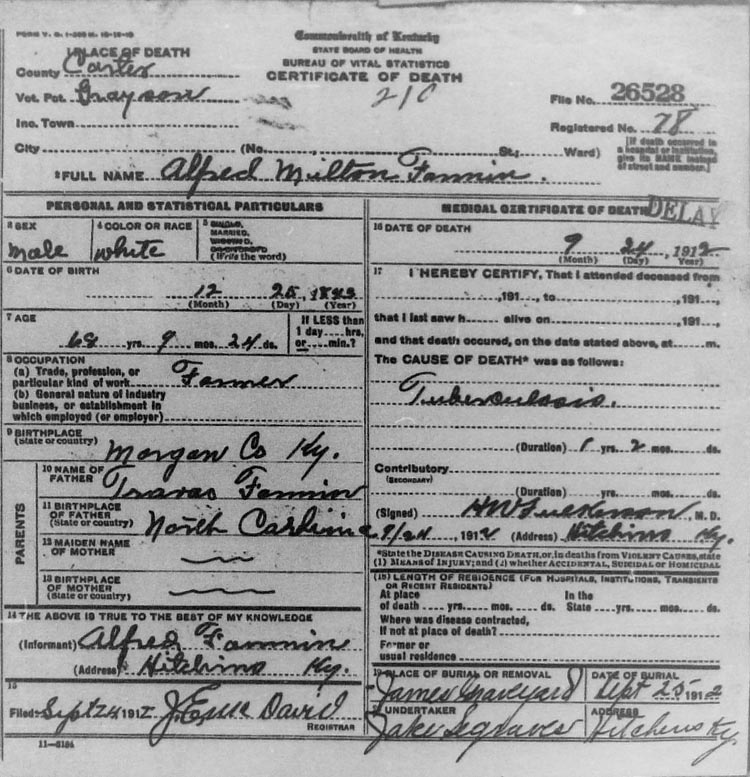 FORM V. S. 1-
Commonwealth of Kentucky
STATE BOARD OF HEALTH
BUREAU OF VITAL STATISTICS
CERTIFICATE OF DEATH
210
1 PLACE OF DEATH
County Carter
Vot. Pct. Grayson
Inc. Town
City (No. St.; Ward)
File No. 26528
Registered No. 78
[If death occurred in a hospital or institution, give its NAME instead of street and number.]
2 FULL NAME Alfred Milton Fannin.
PERSONAL AND STATISTICAL PARTICULARS
3 SEX
male
4 COLOR OR RACE
white
5 SINGLE,
MARRIED,
WIDOWED,
OR DIVORCED
(Write the word)
6 DATE OF BIRTH
12 25, 1843
(Month) (Day) (Year)
7 AGE
68 yrs. 9 mos. 24 ds.
If LESS than
1 day....hrs,
or.....min.?
8 OCCUPATION
(a) Trade, profession, or
particular kind of work Farmer
(b) General nature of industry
business, or establishment in
which employed (or employer)
9 BIRTHPLACE
(State or country)
Morgan Co Ky.
PARENTS
10 NAME OF
FATHER
Travas Fannin
11 BIRTHPLACE
OF FATHER
(State or country)
North Carolina
12 MAIDEN NAME
OF MOTHER
13 BIRTHPLACE
OF MOTHER
(State or country)
14 THE ABOVE IS TRUE TO THE BEST OF MY KNOWLEDGE
(Informant) Alfred Fannin
(Address) Hitchins Ky.
15
Filed Sept 24 1912 David
REGISTRAR
11-5184
MEDICAL CERTIFICATE OF DEATH
DELAY
16 DATE OF DEATH
9 24, 1912
(Month) (Day) (Year)
17 I HEREBY CERTIFY, That I attended deceased from
, 191..., to , 191...,
that I last saw h alive on , 191...,
and that death occured, on the date stated above, at m.
The CAUSE OF DEATH* was as follows:
Tuberculosis.
(Duration) 1 yrs. 2 mos. ds.
Contributory
(SECONDARY)
(Duration) yrs. mos. ds.
(Signed) M. D.
9/24, 1912 (Address) Hitchins Ky.
*State the DISEASE CAUSING DEATH, or, in deaths from VIOLENT CAUSES, state
(1) MEANS OF INJURY; and (2) whether ACCIDENTAL, SUICIDAL or HOMICIDAL
(18) LENGTH OF RESIDENCE (FOR HOSPITALS, INSTITUTIONS, TRANSIENTS
OR RECENT RESIDENTS)
At place In the
of death yrs. mos. ds. State yrs. mos. ds.
Where was disease contracted,
If not at place of death?
Former or
usual residence
19 PLACE OF BURIAL OR REMOVAL
James Graveyard
DATE OF BURIAL
Sept 25 1912
20 UNDERTAKER
Jake Segraves
ADDRESS
Hitchens Ky.